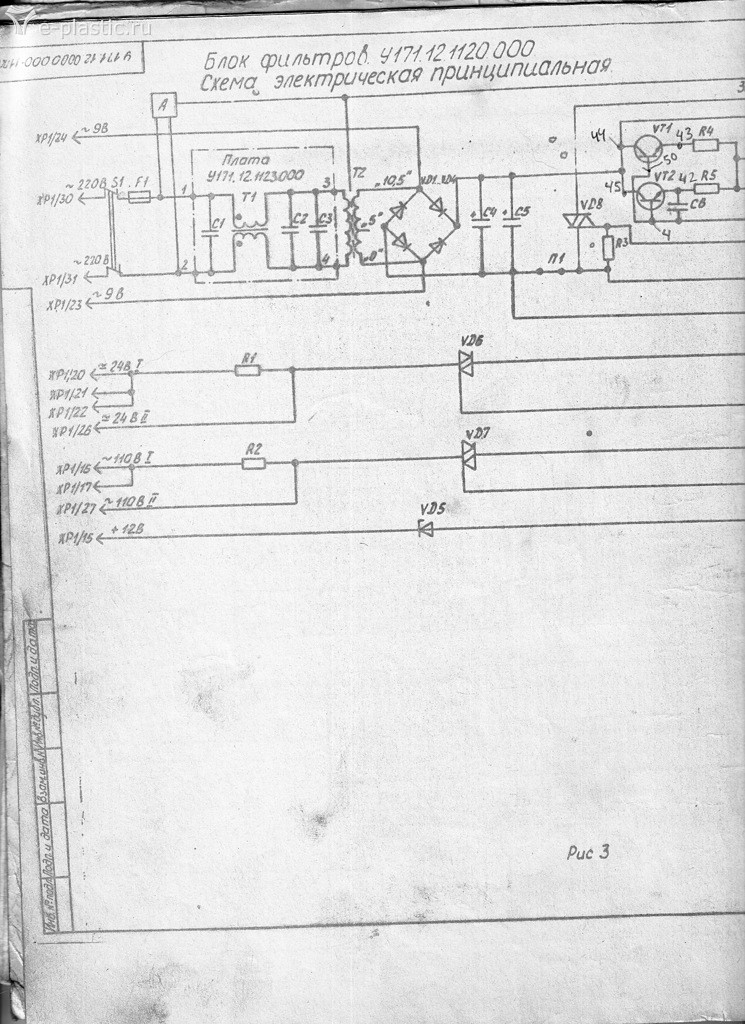 e-plastic.ru
У171.12.0000.000
Блок фильтров. У171.12.1120.000
Схема электрическая принципиальная.
А
З
ХР1/24 ~9В
44 VT1 43 R4
Плата
У171.12.1123.000
50
VT2 42 R5
~220В S1 F1 1 3 T2 „10,5" VD1..VD4
ХР1/30
45
T1
C1 C2 C3 „5" C4 C5 VD8 C8
4
R3
~220В 2 4 „0" П1
ХР1/31
ХР1/23 ~9В
VD6
ХР1/20 ≃24В I R1
ХР1/21
ХР1/22
ХР1/26 ≃24В II
VD7
ХР1/16 ~110В I R2
ХР1/17
ХР1/27 ~110В II
VD5
ХР1/15 +12В
Подп и дата
Взам инв.№
Подп и дата
Инв.№ подл
Рис 3